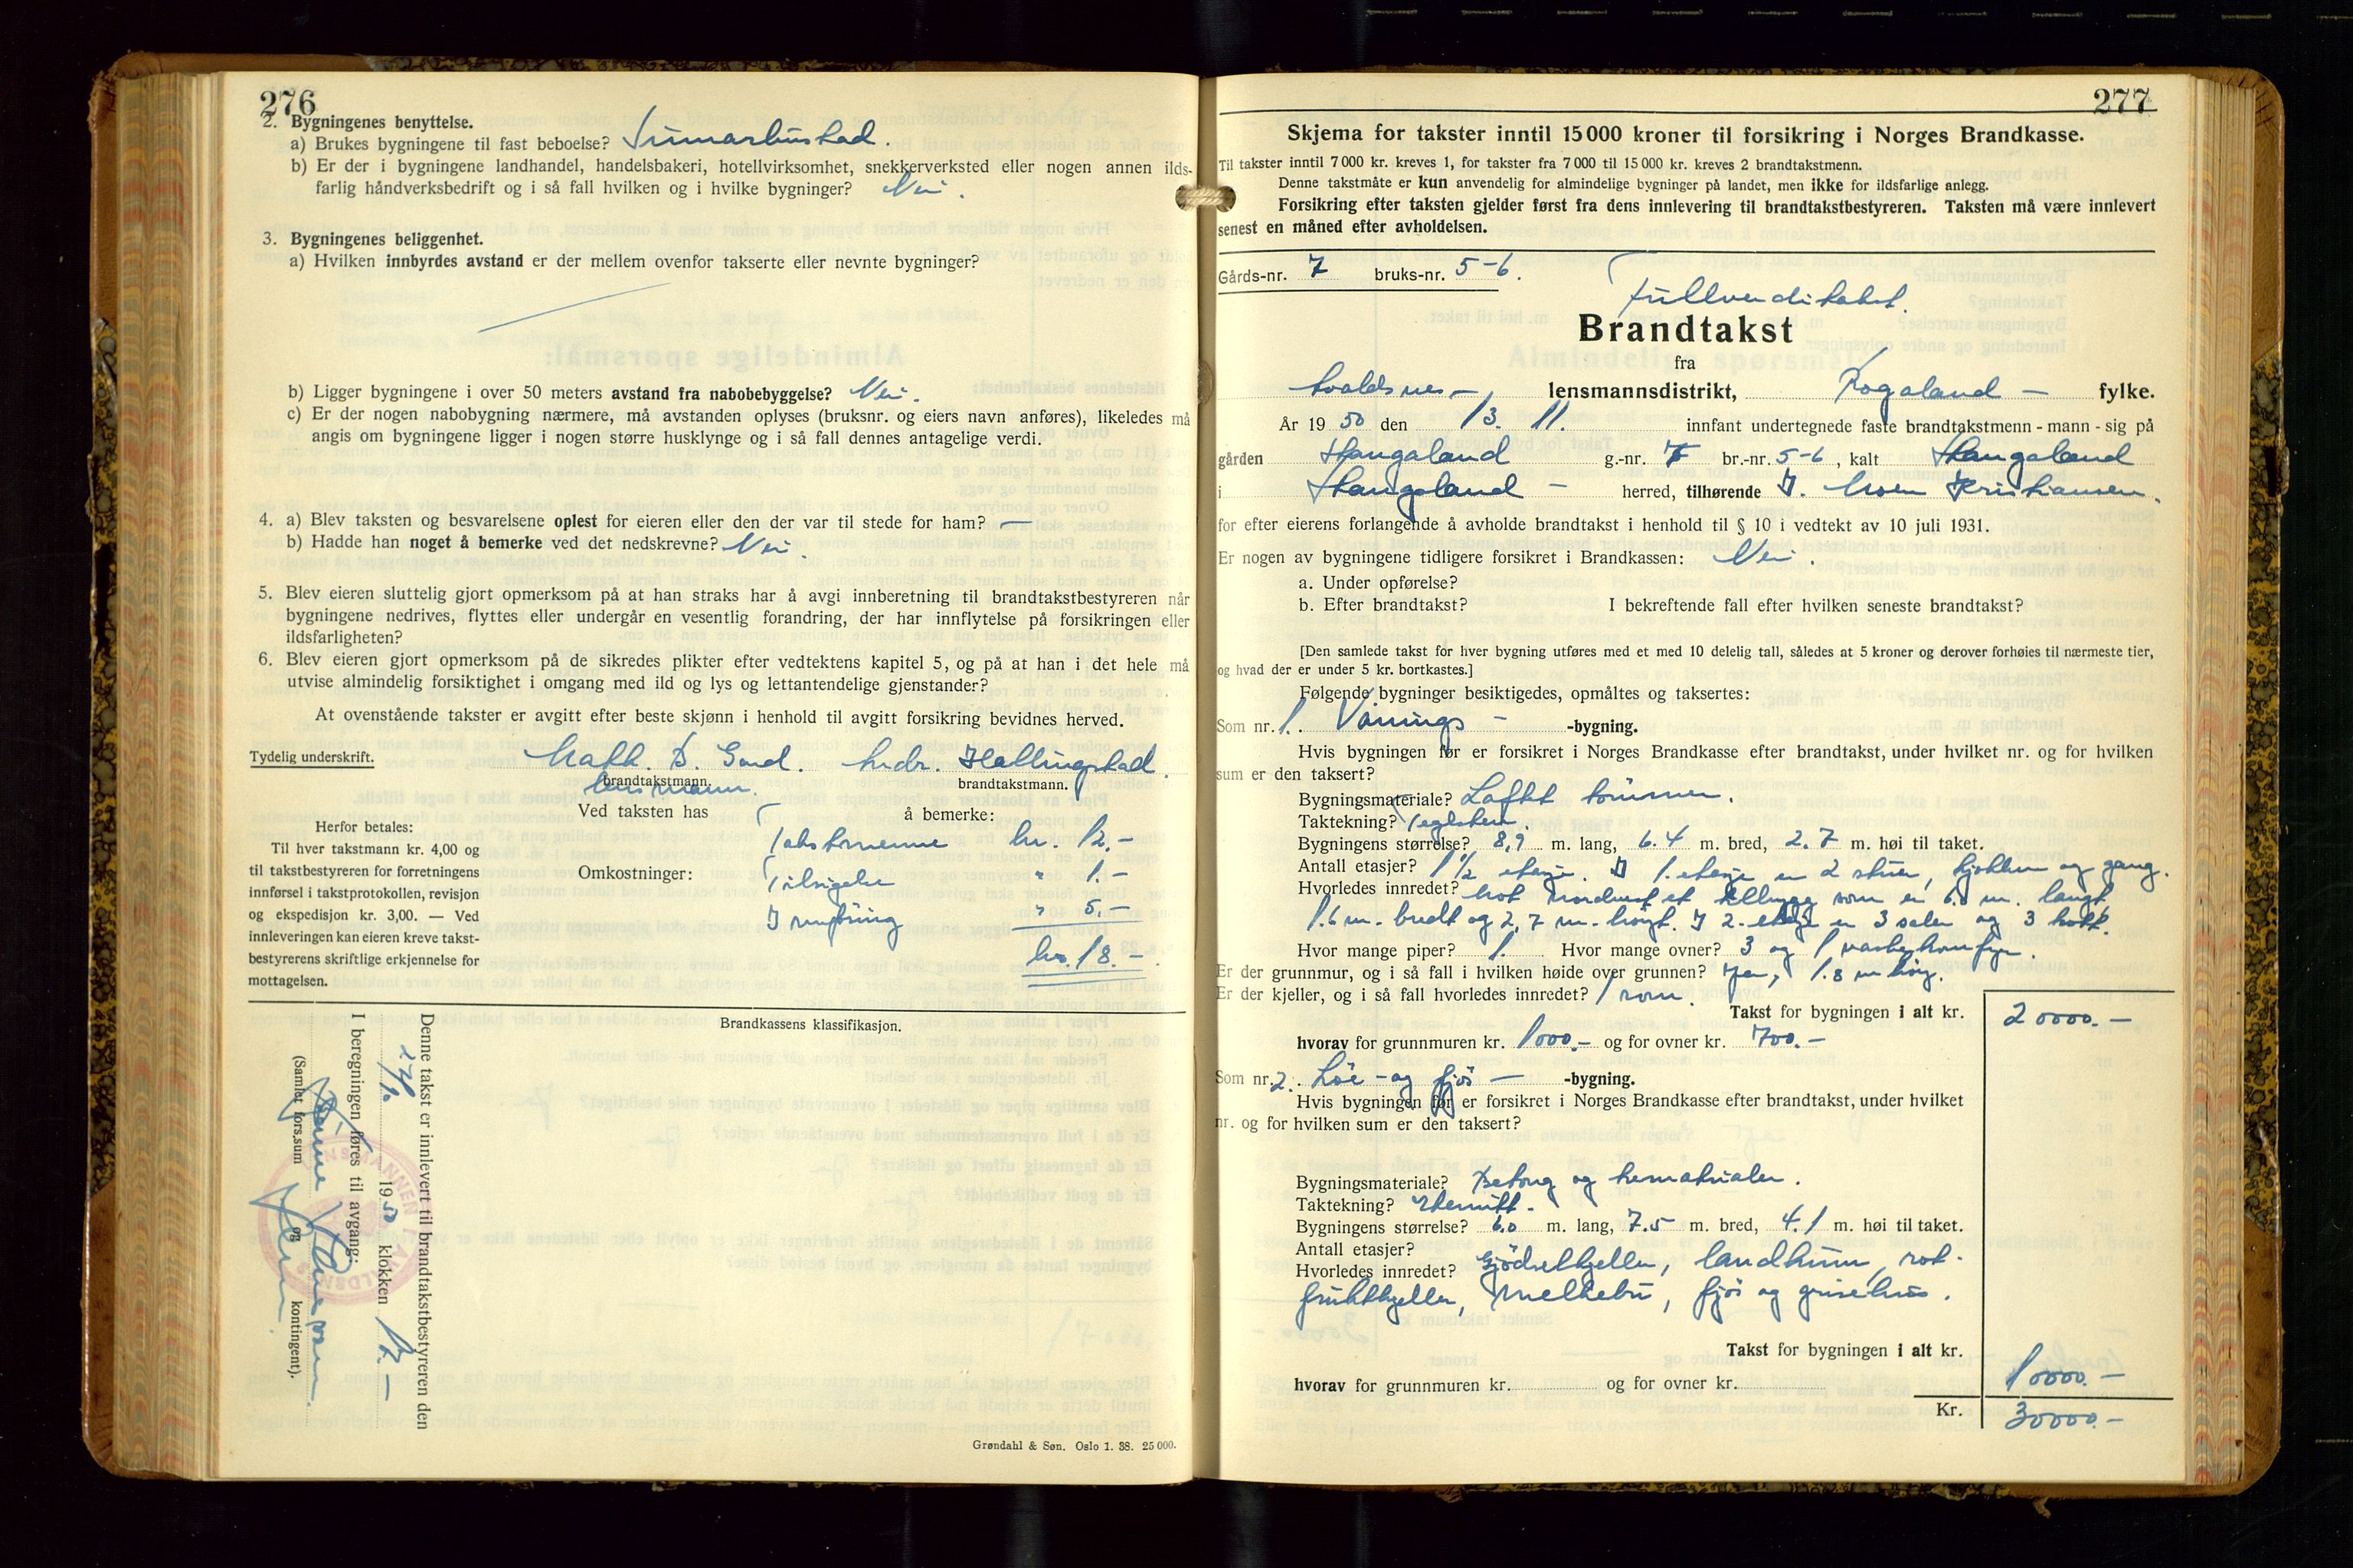 276
2. Bygningenes benyttelse.
a) Brukes bygningene til fast beboelse? Sumarbustad.
b) Er der i bygningene landhandel, handelsbakeri, hotellvirksomhet, snekkerverksted eller nogen annen ilds-
farlig håndverksbedrift og i så fall hvilken og i hvilke bygninger? Nei.
3. Bygningenes beliggenhet.
a) Hvilken innbyrdes avstand er der mellem ovenfor takserte eller nevnte bygninger?
b) Ligger bygningene i over 50 meters avstand fra nabobebyggelse? Nei.
c) Er der nogen nabobygning nærmere, må avstanden oplyses (bruksnr. og eiers navn anføres), likeledes må
angis om bygningene ligger i nogen større husklynge og i så fall dennes antagelige verdi.
4. a) Blev taksten og besvarelsene oplest for eieren eller den der var til stede for ham? —
b) Hadde han noget å bemerke ved det nedskrevne? Nei.
5. Blev eieren sluttelig gjort opmerksom på at han straks har å avgi innberetning til brandtakstbestyreren når
bygningene nedrives, flyttes eller undergår en vesentlig forandring, der har innflytelse på forsikringen eller
ildsfarligheten?
6. Blev eieren gjort opmerksom på de sikredes plikter efter vedtektens kapitel 5, og på at han i det hele må
utvise almindelig forsiktighet i omgang med ild og lys og lettantendelige gjenstander?
At ovenstående takster er avgitt efter beste skjønn i henhold til avgitt forsikring bevidnes herved.
Tydelig underskrift. Hallingstad.
brandtakstmann. brandtakstmann.
lensmann.
Ved taksten has å bemerke:
Herfor betales:
Til hver takstmann kr. 4,00 og
til takstbestyreren for forretningens
innførsel i takstprotokollen, revisjon
og ekspedisjon kr. 3,00. — Ved
innleveringen kan eieren kreve takst-
bestyrerens skriftlige erkjennelse for
mottagelsen.
Takstmennene kr. 12.-
Omkostninger: Tilsigelse " 1.-
Innføring " 5.-
kr. 18.-
Brandkassens klassifikasjon.
Denne takst er innlevert til brandtakstbestyreren den
1950 klokken 12.-
I beregningen føres til avgang:
(Samlet fors.sum og kontingent).
Grøndahl & Søn. Oslo 1. 38. 25 000.
277
Skjema for takster inntil 15 000 kroner til forsikring i Norges Brandkasse.
Til takster inntil 7 000 kr. kreves 1, for takster fra 7 000 til 15 000 kr. kreves 2 brandtakstmenn.
Denne takstmåte er kun anvendelig for almindelige bygninger på landet, men ikke for ildsfarlige anlegg.
Forsikring efter taksten gjelder først fra dens innlevering til brandtakstbestyreren. Taksten må være innlevert
senest en måned efter avholdelsen.
Gårds-nr. 7 bruks-nr. 5-6.
Fullverditakst.
Brandtakst
fra
Avaldsnes - lensmannsdistrikt, Rogaland — fylke.
År 1950 den 13. 11. innfant undertegnede faste brandtakstmenn - mann - sig på
gården Stangaland g.-nr. 7 br.-nr. 5-6, kalt Stangaland
i Stangaland - herred, tilhørende J. Moen Kristiansen.
for efter eierens forlangende å avholde brandtakst i henhold til § 10 i vedtekt av 10 juli 1931.
Er nogen av bygningene tidligere forsikret i Brandkassen: Nei.
a. Under opførelse?
b. Efter brandtakst? I bekreftende fall efter hvilken seneste brandtakst?
[Den samlede takst for hver bygning utføres med et med 10 delelig tall, således at 5 kroner og derover forhøies til nærmeste tier,
og hvad der er under 5 kr. bortkastes.]
Følgende bygninger besiktigedes, opmåltes og taksertes:
Som nr. 1. Vånings - -bygning.
Hvis bygningen før er forsikret i Norges Brandkasse efter brandtakst, under hvilket nr. og for hvilken
sum er den taksert?
Bygningsmateriale? Laftet tømmer.
Taktekning? Teglstein.
Bygningens størrelse? 8,9 m. lang, 6.4 m. bred, 2.7 m. høi til taket.
Antall etasjer? 1 1/2 etasje. I 1. etasje er 2 stuer, kjøkken og gang.
Hvorledes innredet? Mot nordvest et tilbygg som er 6.0 m. langt
1.6 m. bredt og 2,7 m. høgt. I 2. etasje er 3 saler og 3 kott.
Hvor mange piper? 1. Hvor mange ovner? 3 og 1 vaskekomfyr.
Er der grunnmur, og i så fall i hvilken høide over grunnen? Ja, 1.8 m høg.
Er der kjeller, og i så fall hvorledes innredet? 1 rom.
Takst for bygningen i alt kr. 20000.-
hvorav for grunnmuren kr. 1000.- og for ovner kr. 700.-
Som nr. 2. Løe - og fjøs — -bygning.
Hvis bygningen før er forsikret i Norges Brandkasse efter brandtakst, under hvilket
nr. og for hvilken sum er den taksert?
Bygningsmateriale? Betong og trematrialer.
Taktekning? Eternitt.
Bygningens størrelse? 6.0 m. lang, 7.5 m. bred, 4.1 m. høi til taket.
Antall etasjer?
Hvorledes innredet? Gjødselkjeller, landkum, rot-
fruktkjeller, melkebu, fjøs og grisehus.
Takst for bygningen i alt kr. 10000.-
hvorav for grunnmuren kr. og for ovner kr.
Kr. 30000.-